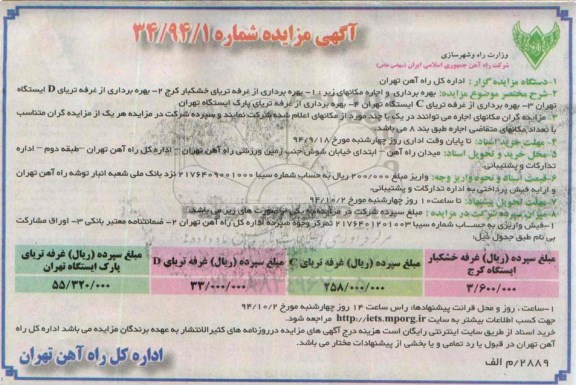 آگهی مزایده شماره ۳۴/۹۴/۱
وزارت راه و شهرسازی
شرکت راه آهن جمهوری اسلامی ایران (سهامی خاص)
۱-دستگاه مزایده گزار : اداره کل راه آهن تهران
۲-شرح مختصر موضوع مزایده: بهره برداری و اجاره مکانهای زیر :۱- بهره برداری از غرفه تریای خشکبار کرج ۲- بهره برداری از غرفه تریای D ایستگاه
تهران ۳- بهره برداری از غرفه تریای C ایستگاه تهران ۴- بهره برداری از غرفه تریای پارک ایستگاه تهران
۳- مزایده گران مکانهای اجاره می توانند در یک یا چند مورد از مکانهای اعلام شده شرکت نمایند و سپرده شرکت در مزایده هر یک از مزایده گران متناسب
با تعداد مکانهای متقاضی اجاره طبق بند ۸ می باشد.
۴- مهلت خرید اسناد: تا پایان وقت اداری روز چهارشنبه مورخ ۹۴/۹/۱۸
۵- محل خرید و تحویل اسناد: میدان راه آهن – ابتدای خیابان شوش جنب زمین ورزشی راه آهن تهران – اداره کل راه آهن تهران –طبقه دوم – اداره
تدارکات و پشتیبانی.
۶- قیمت اسناد و نحوه واریز وجه: واریز مبلغ ۲۰۰/۰۰۰ ریال به حساب شماره سیبا ۲۱۷۶۴۰۹۰۰۱۰۰۰ نزد بانک ملی شعبه انبار توشه راه آهن تهران
و ارایه فیش پرداختی به اداره تدارکات و پشتیبانی.
۷- مهلت تحویل پیشنهاد: تا ساعت ۱۰ روز چهارشنبه مورخ ۹۴/۱۰/۲
۸- میزان سپرده شرکت در مزایده: مبلغ سپرده شرکت در مزایده به یکی از صورت های زیر می باشد.
۱-فیش واریزی به حساب شماره سیبا ۲۱۷۶۴۰۱۲۰۱۰۰۳ تمرکز وجوه سپرده اداره کل راه آهن تهران ۲- ضمانتنامه معتبر بانکی ۳- اوراق مشارکت
بی نام طبق جدول ذیل:
مبلغ سپرده (ریال) غرفه خشکبار ایستگاه کرج
مبلغ سپرده (ریال) غرفه تریای C
مبلغ سپرده (ریال) غرفه تریای D
مبلغ سپرده (ریال) غرفه تریای پارک ایستگاه تهران
۳/۶۰۰/۰۰۰
۲۵۸/۰۰۰/۰۰۰
۳۳/۰۰۰/۰۰۰
۵۵/۳۲۰/۰۰۰
۱-ساعت ، روز و محل قرائت پیشنهادها: راس ساعت ۱۴ روز چهارشنبه مورخ ۹۴/۱۰/۲
جهت کسب اطلاعات بیشتر به سایت http://iets.mporg.ir مراجعه شود.
خرید اسناد از طریق سایت اینترنتی رایگان است هزینه درج آگهی های مزایده درروزنامه های کثیرالانتشار به عهده برندگان مزایده می باشد اداره کل راه
آهن تهران در قبول یا رد تمامی و یا بخشی از پیشنهادات مختار می باشد.
۲۸۸۹/م الف
اداره کل راه آهن تهران